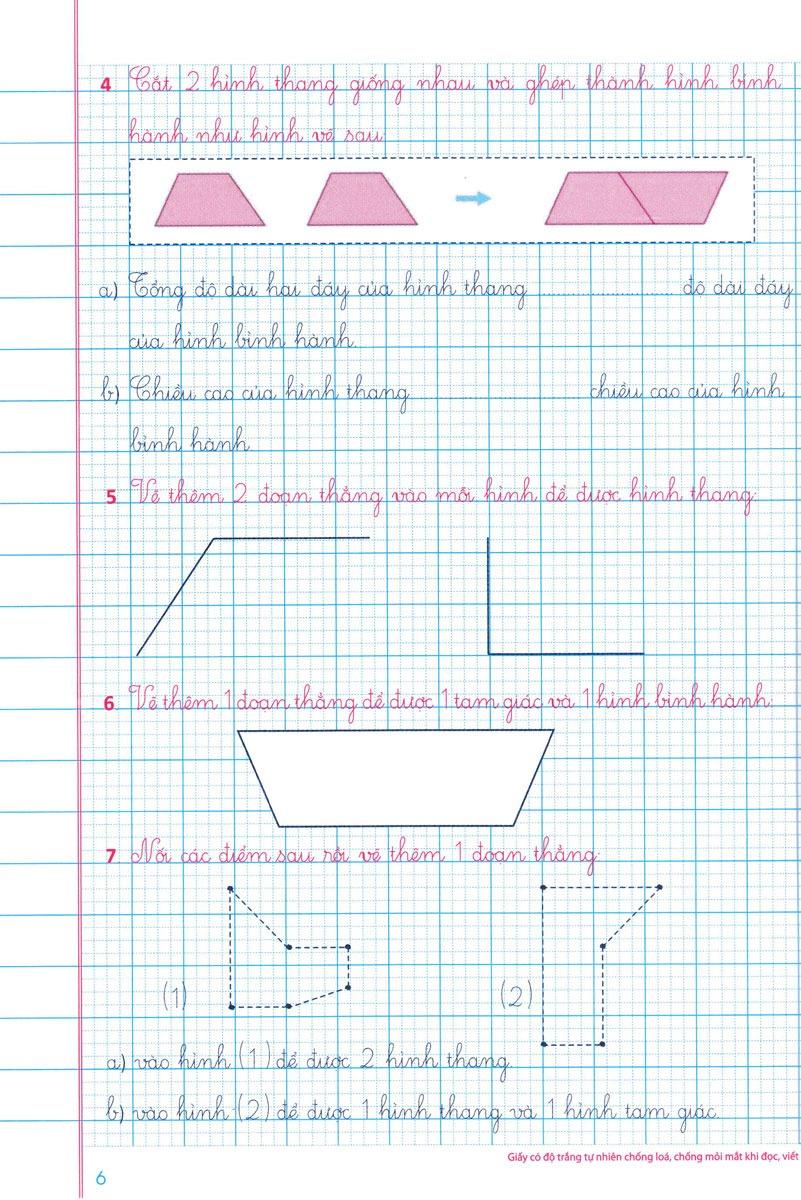 4 Cắt 2 hình thang giống nhau và ghép thành hình bình
hành như hình vẽ sau:
a) Tổng độ dài hai đáy của hình thang .................... độ dài đáy
của hình bình hành.
b) Chiều cao của hình thang .................... chiều cao của hình
bình hành.
5 Vẽ thêm 2 đoạn thẳng vào mỗi hình để được hình thang:
6 Vẽ thêm 1 đoạn thẳng để được 1 tam giác và 1 hình bình hành:
7 Nối các điểm sau rồi vẽ thêm 1 đoạn thẳng:
(1) (2)
a) vào hình (1) để được 2 hình thang.
b) vào hình (2) để được 1 hình thang và 1 hình tam giác.
Giấy có độ trắng tự nhiên chống loá, chống mỏi mắt khi đọc, viết
6